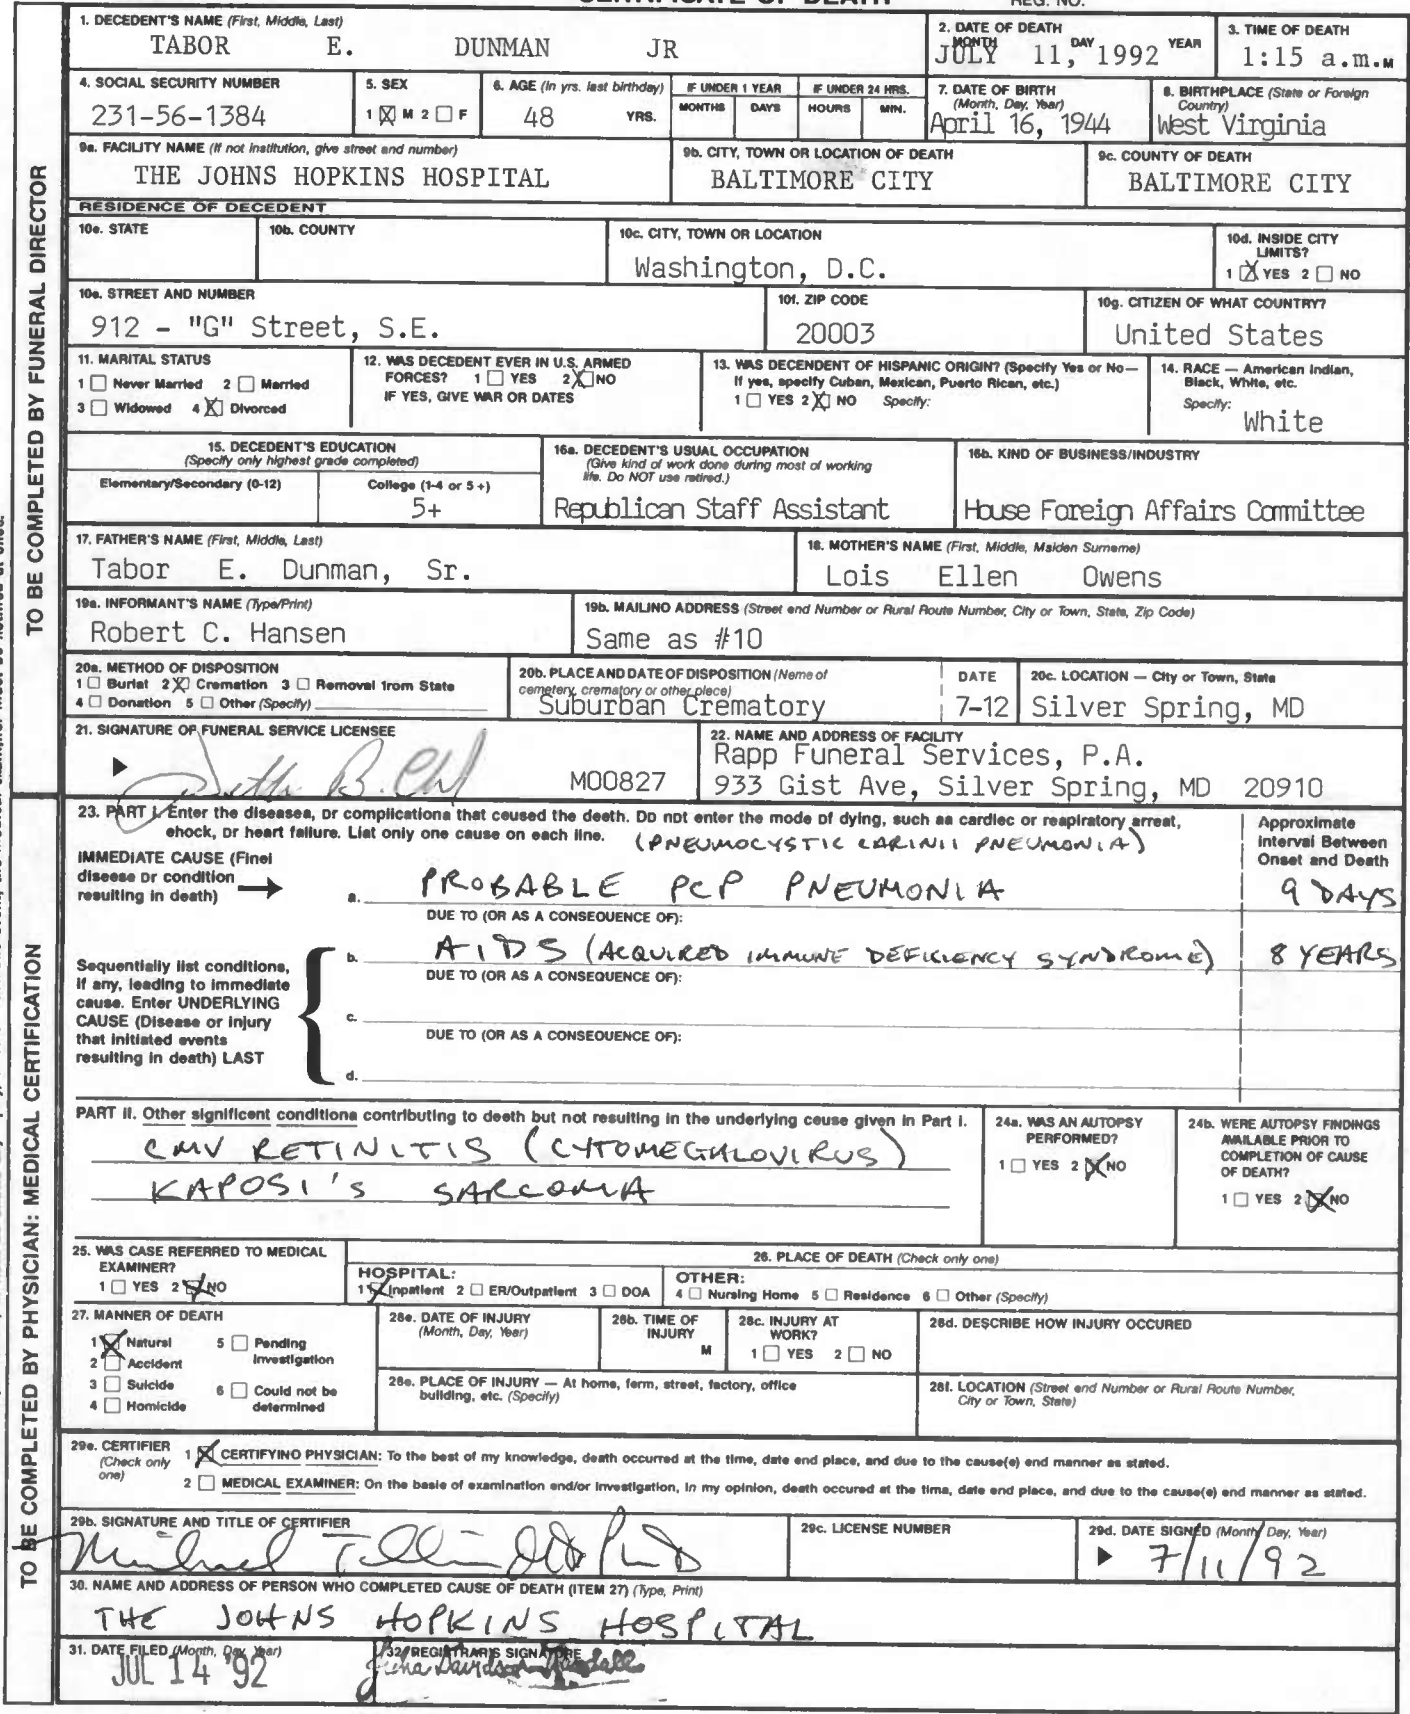 CERTIFICATE OF DEATH REG. NO.
1. DECEDENT'S NAME (First, Middle, Last)
TABOR E. DUNMAN JR
2. DATE OF DEATH
MONTH DAY YEAR
JULY 11, 1992
3. TIME OF DEATH
1:15 a.m. M
4. SOCIAL SECURITY NUMBER
231-56-1384
5. SEX
1 ☒ M 2 ☐ F
6. AGE (In yrs. last birthday)
48 YRS.
IF UNDER 1 YEAR
MONTHS DAYS
IF UNDER 24 HRS.
HOURS MIN.
7. DATE OF BIRTH
(Month, Day, Year)
April 16, 1944
8. BIRTHPLACE (State or Foreign
Country)
West Virginia
9a. FACILITY NAME (If not institution, give street and number)
THE JOHNS HOPKINS HOSPITAL
9b. CITY, TOWN OR LOCATION OF DEATH
BALTIMORE CITY
9c. COUNTY OF DEATH
BALTIMORE CITY
RESIDENCE OF DECEDENT
10a. STATE
10b. COUNTY
10c. CITY, TOWN OR LOCATION
Washington, D.C.
10d. INSIDE CITY
LIMITS?
1 ☒ YES 2 ☐ NO
10e. STREET AND NUMBER
912 - "G" Street, S.E.
10f. ZIP CODE
20003
10g. CITIZEN OF WHAT COUNTRY?
United States
11. MARITAL STATUS
1 ☐ Never Married 2 ☐ Married
3 ☐ Widowed 4 ☒ Divorced
12. WAS DECEDENT EVER IN U.S. ARMED
FORCES? 1 ☐ YES 2 ☒ NO
IF YES, GIVE WAR OR DATES
13. WAS DECENDENT OF HISPANIC ORIGIN? (Specify Yes or No—
If yes, specify Cuban, Mexican, Puerto Rican, etc.)
1 ☐ YES 2 ☒ NO Specify:
14. RACE — American Indian,
Black, White, etc.
Specify:
White
15. DECEDENT'S EDUCATION
(Specify only highest grade completed)
Elementary/Secondary (0-12)
College (1-4 or 5+)
5+
16a. DECEDENT'S USUAL OCCUPATION
(Give kind of work done during most of working
life. Do NOT use retired.)
Republican Staff Assistant
16b. KIND OF BUSINESS/INDUSTRY
House Foreign Affairs Committee
17. FATHER'S NAME (First, Middle, Last)
Tabor E. Dunman, Sr.
18. MOTHER'S NAME (First, Middle, Maiden Surname)
Lois Ellen Owens
19a. INFORMANT'S NAME (Type/Print)
Robert C. Hansen
19b. MAILING ADDRESS (Street end Number or Rural Route Number, City or Town, State, Zip Code)
Same as #10
20a. METHOD OF DISPOSITION
1 ☐ Burial 2 ☒ Cremation 3 ☐ Removal from State
4 ☐ Donation 5 ☐ Other (Specify)
20b. PLACE AND DATE OF DISPOSITION (Name of
cemetery, crematory or other place)
Suburban Crematory
DATE
7-12
20c. LOCATION — City or Town, State
Silver Spring, MD
21. SIGNATURE OF FUNERAL SERVICE LICENSEE
M00827
22. NAME AND ADDRESS OF FACILITY
Rapp Funeral Services, P.A.
933 Gist Ave, Silver Spring, MD 20910
TO BE COMPLETED BY FUNERAL DIRECTOR
23. PART I. Enter the diseases, or complications that caused the death. Do not enter the mode of dying, such as cardiac or respiratory arrest,
shock, or heart failure. List only one cause on each line.
(PNEUMOCYSTIC CARINII PNEUMONIA)
Approximate
Interval Between
Onset and Death
IMMEDIATE CAUSE (Final
disease or condition
resulting in death)
a. PROBABLE PCP PNEUMONIA 9 DAYS
DUE TO (OR AS A CONSEQUENCE OF):
b. AIDS (ACQUIRED IMMUNE DEFICIENCY SYNDROME) 8 YEARS
DUE TO (OR AS A CONSEQUENCE OF):
c.
DUE TO (OR AS A CONSEQUENCE OF):
d.
Sequentially list conditions,
if any, leading to immediate
cause. Enter UNDERLYING
CAUSE (Disease or injury
that initiated events
resulting in death) LAST
PART II. Other significant conditions contributing to death but not resulting in the underlying cause given in Part I.
CMV RETINITIS (CYTOMEGALOVIRUS)
KAPOSI'S SARCOMA
24a. WAS AN AUTOPSY
PERFORMED?
1 ☐ YES 2 ☒ NO
24b. WERE AUTOPSY FINDINGS
AVAILABLE PRIOR TO
COMPLETION OF CAUSE
OF DEATH?
1 ☐ YES 2 ☒ NO
25. WAS CASE REFERRED TO MEDICAL
EXAMINER?
1 ☐ YES 2 ☒ NO
26. PLACE OF DEATH (Check only one)
HOSPITAL:
1 ☒ Inpatient 2 ☐ ER/Outpatient 3 ☐ DOA
OTHER:
4 ☐ Nursing Home 5 ☐ Residence 6 ☐ Other (Specify)
27. MANNER OF DEATH
1 ☒ Natural 5 ☐ Pending
2 ☐ Accident Investigation
3 ☐ Suicide 6 ☐ Could not be
4 ☐ Homicide determined
28a. DATE OF INJURY
(Month, Day, Year)
28b. TIME OF
INJURY
M
28c. INJURY AT
WORK?
1 ☐ YES 2 ☐ NO
28d. DESCRIBE HOW INJURY OCCURED
28e. PLACE OF INJURY — At home, farm, street, factory, office
building, etc. (Specify)
28f. LOCATION (Street end Number or Rural Route Number,
City or Town, State)
29a. CERTIFIER
(Check only
one)
1 ☒ CERTIFYING PHYSICIAN: To the best of my knowledge, death occurred at the time, date end place, and due to the cause(s) end manner as stated.
2 ☐ MEDICAL EXAMINER: On the basis of examination end/or investigation, in my opinion, death occured at the time, date end place, and due to the cause(s) end manner as stated.
29b. SIGNATURE AND TITLE OF CERTIFIER
Michael
29c. LICENSE NUMBER
29d. DATE SIGNED (Month, Day, Year)
7/11/92
30. NAME AND ADDRESS OF PERSON WHO COMPLETED CAUSE OF DEATH (ITEM 27) (Type, Print)
THE JOHNS HOPKINS HOSPITAL
31. DATE FILED (Month, Day, Year)
JUL 14 '92
32. REGISTRAR'S SIGNATURE
Davidson
TO BE COMPLETED BY PHYSICIAN: MEDICAL CERTIFICATION